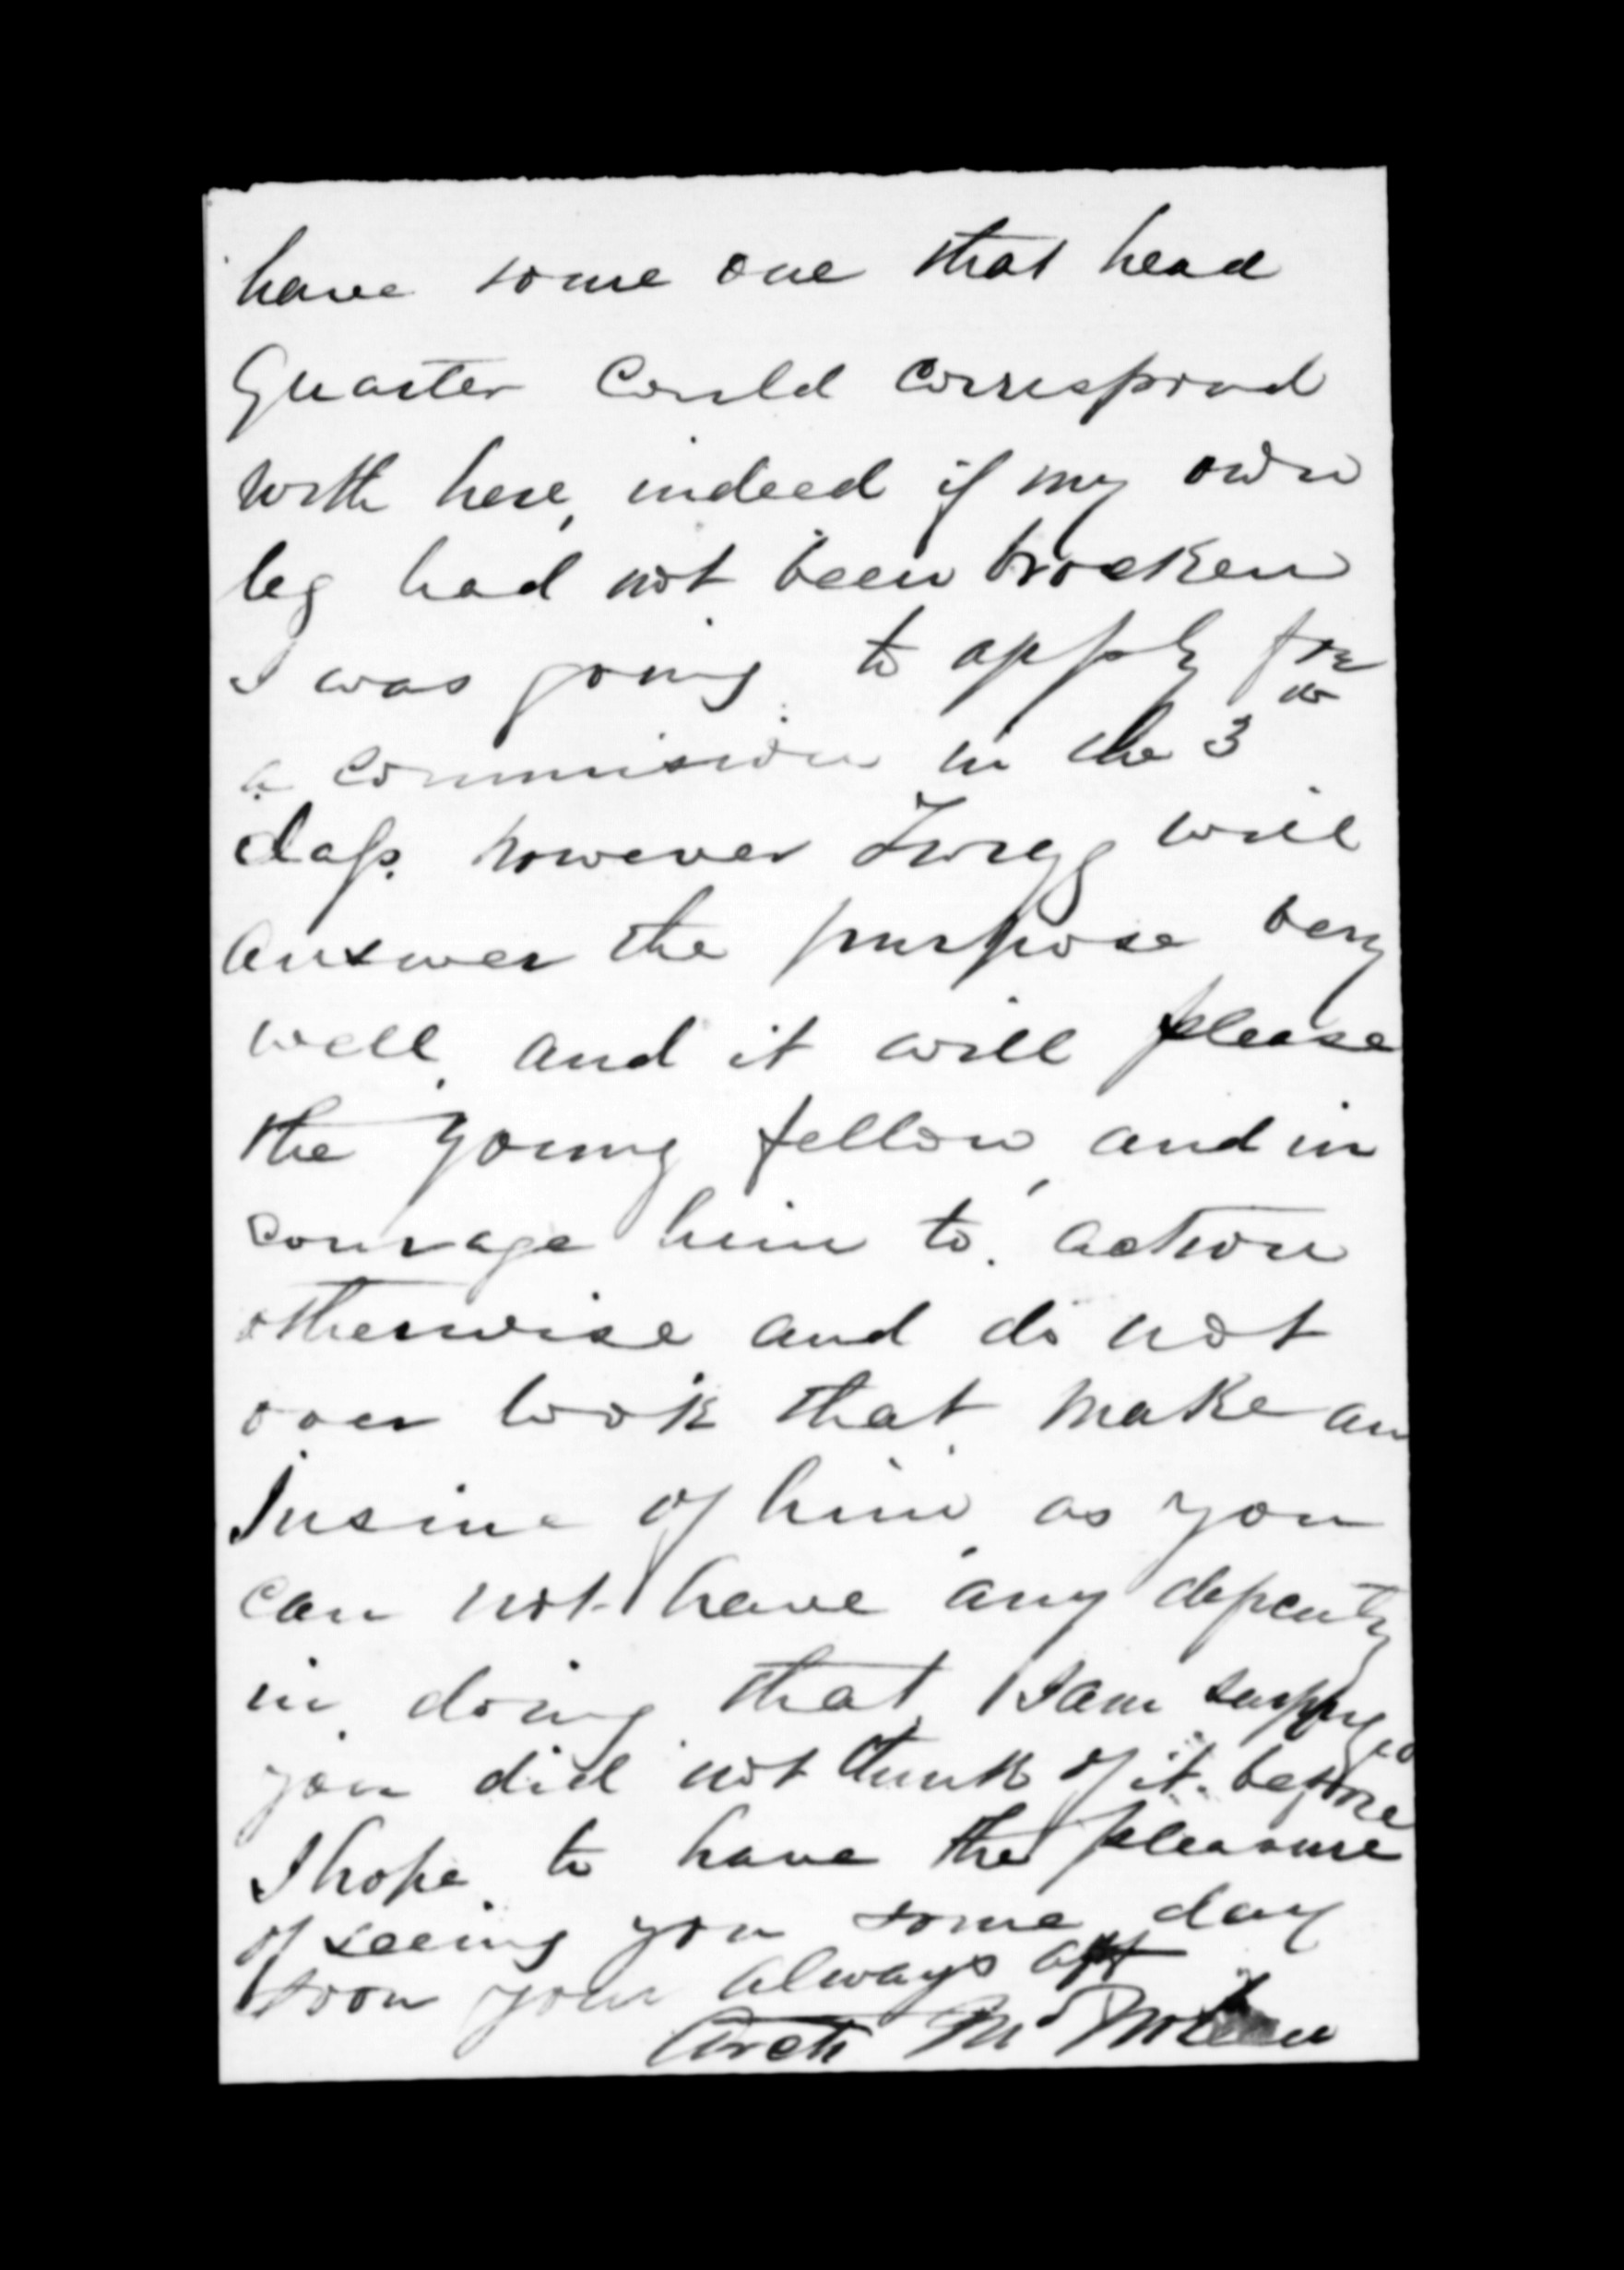 have some one that head
Quarter Could correspond
with here, indeed if my own
leg had not been brocken
I was going to apply for
a commission in the 3
class. however Twigg will
answer the purpose very
well, and it will please
the young fellow, and in
courage him to action
otherwise and do not
over look that make an
Insine of him, as you
can not have any
in doing that, I am
you did not think of it before
I hope to have the pleasure
of seeing you some day
soon your always
Arch Mc